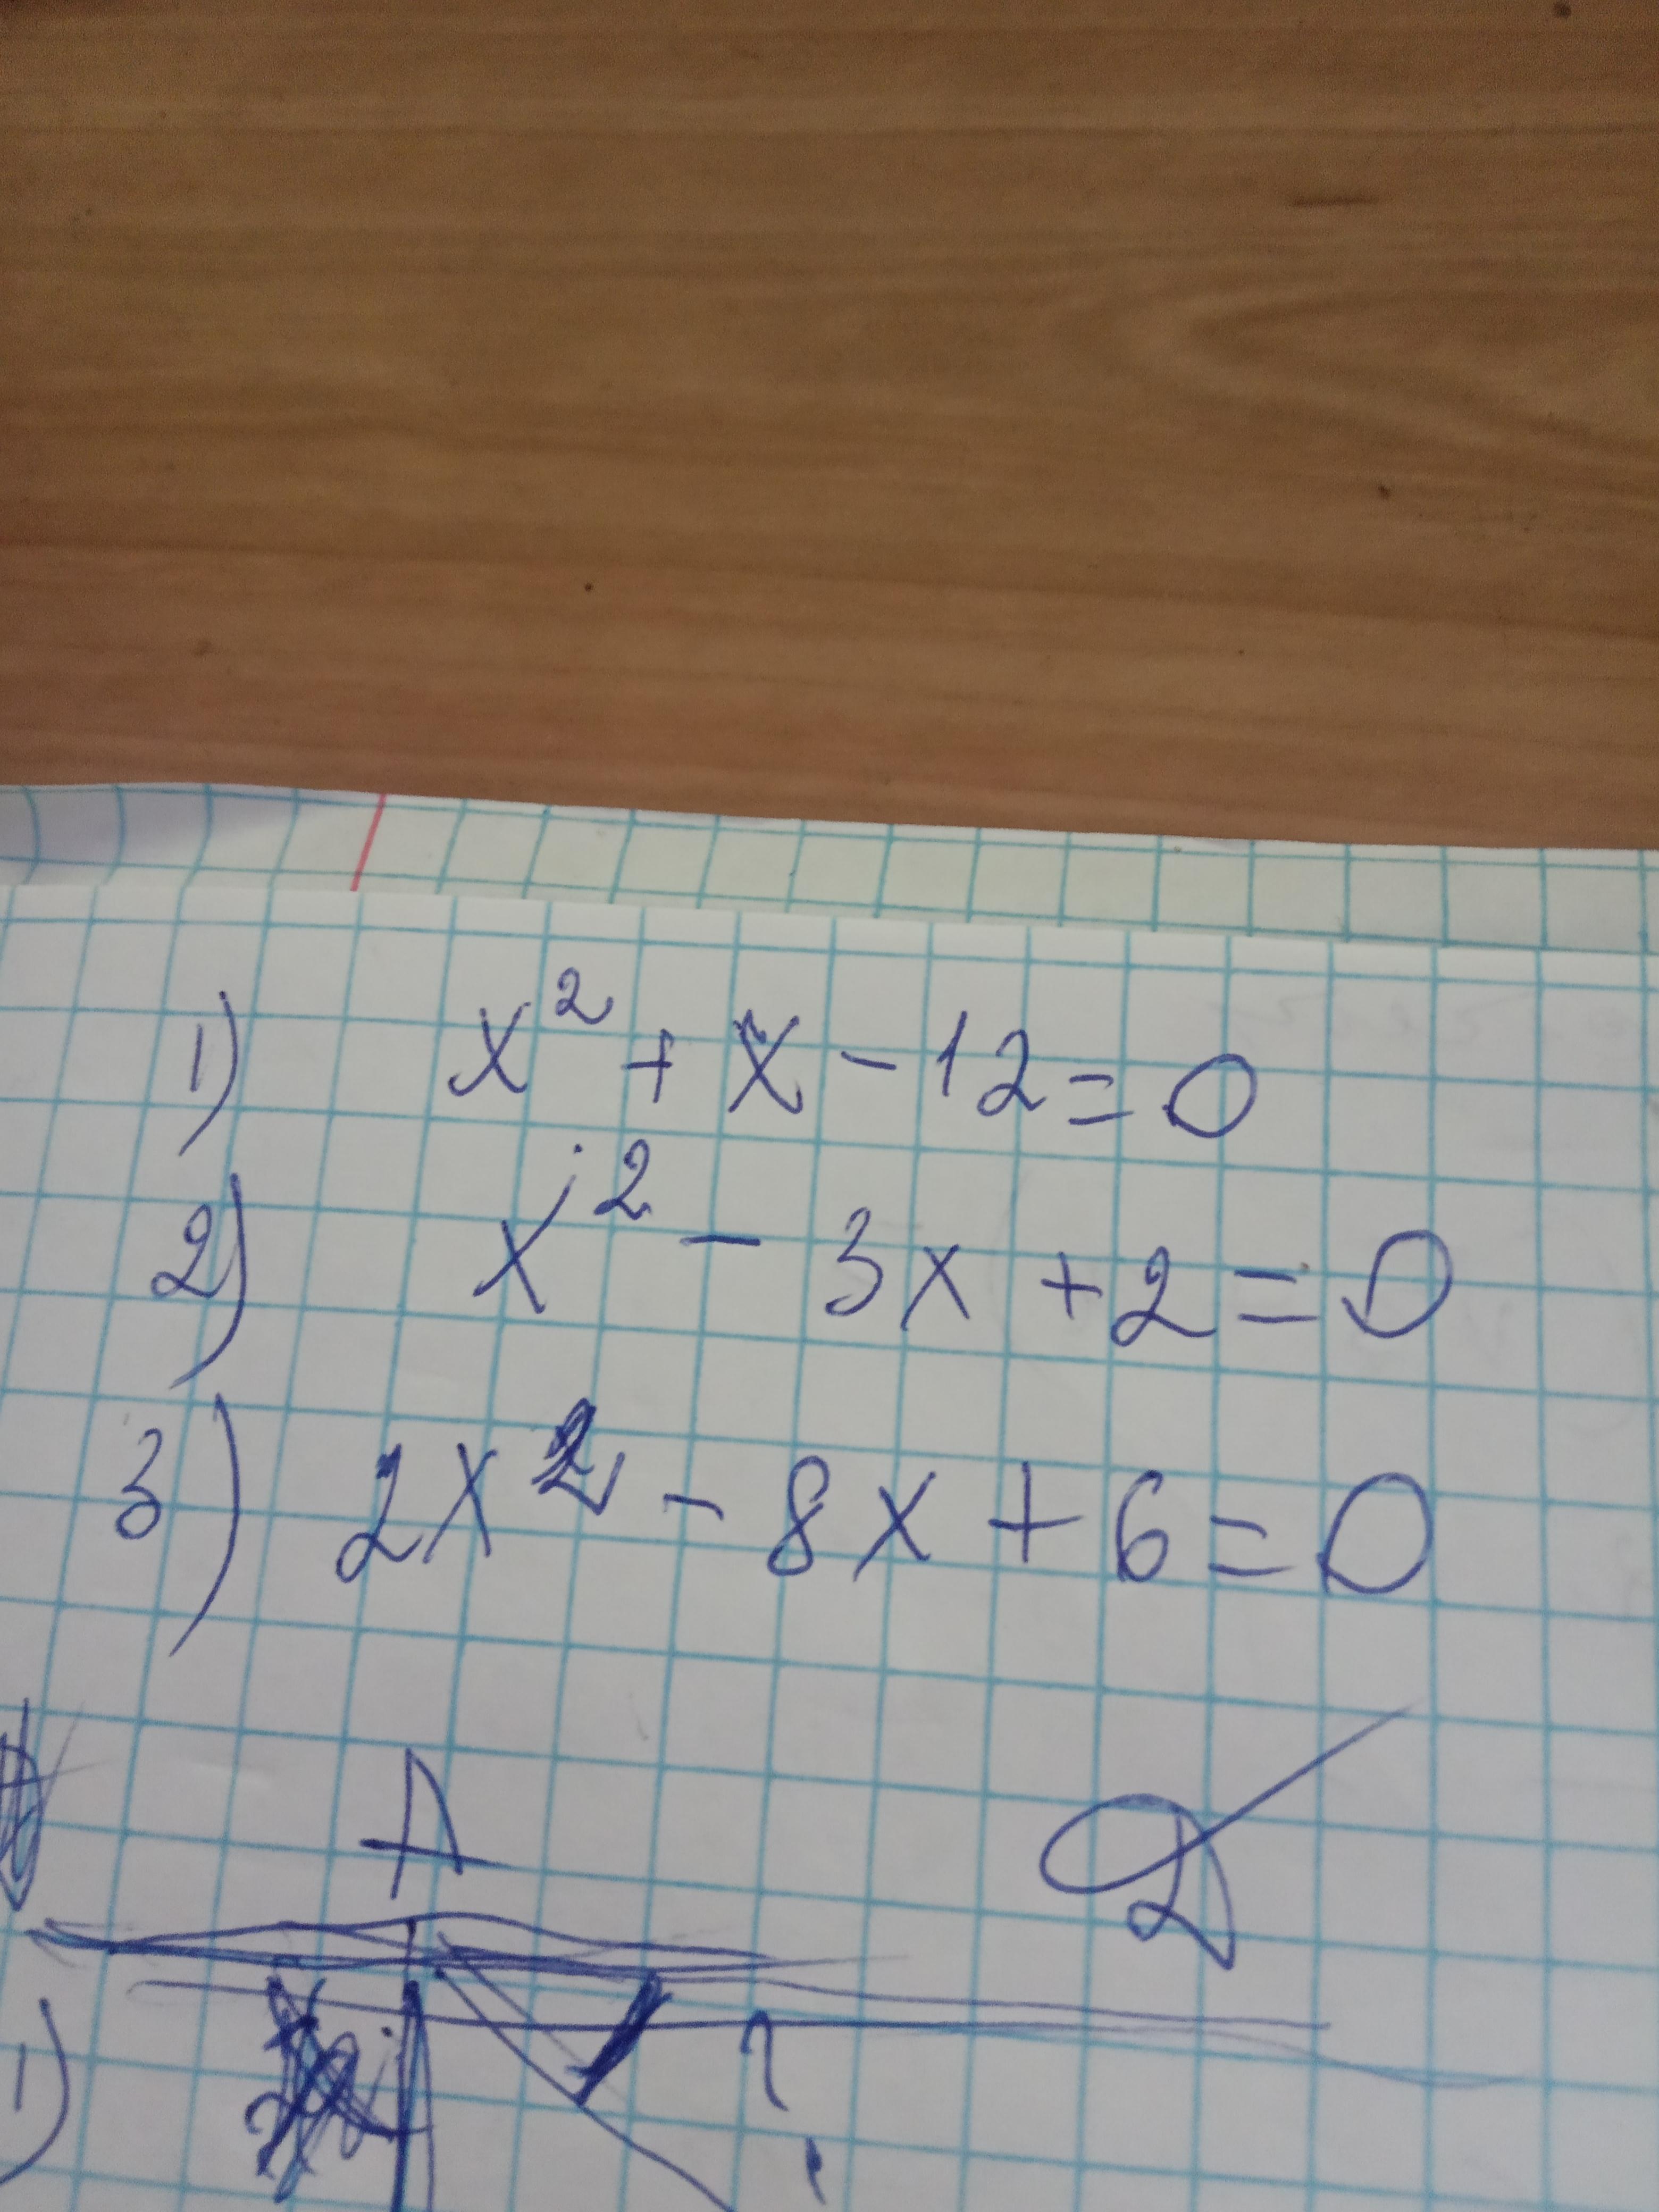 1) x² + x - 12 = 0
2) x² - 3x + 2 = 0
3) 2x² - 8x + 6 = 0
A
1)